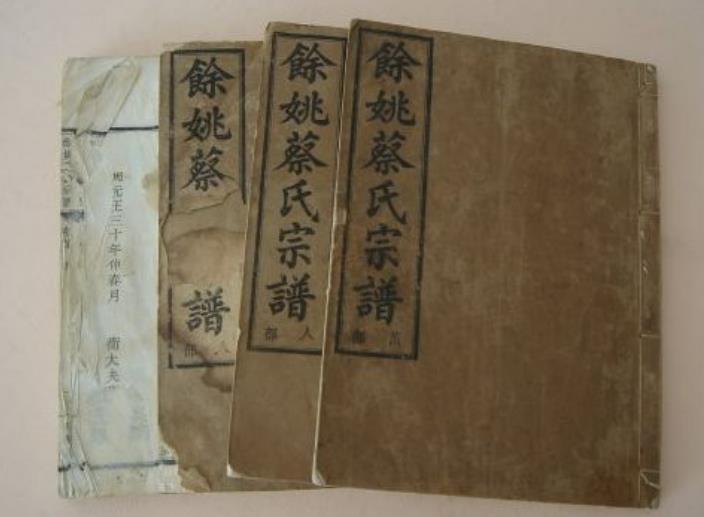 餘姚蔡氏宗譜
部
餘姚蔡氏宗譜
人部
餘姚蔡
譜
八部
周元王三十年仲春月
衛大夫